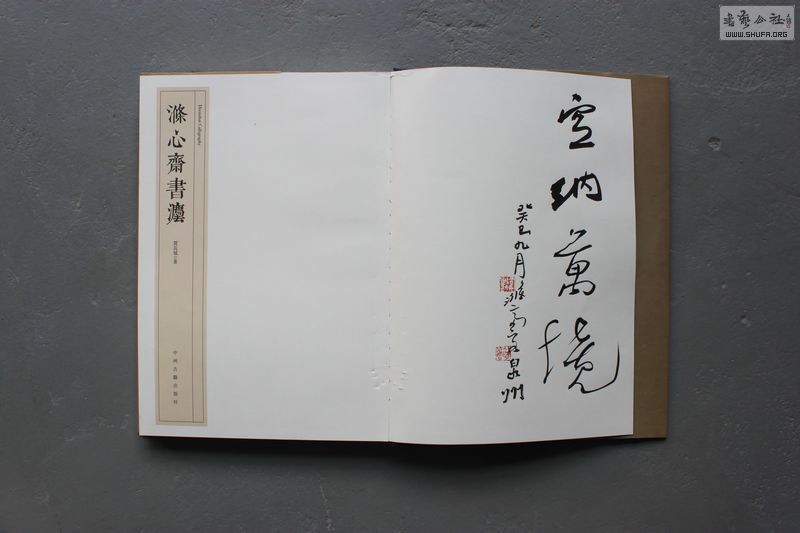 書藝公社
WWW.SHUFA.ORG
滌心齋書灋
中州古籍出版社
空納萬境
癸巳九月
泉州